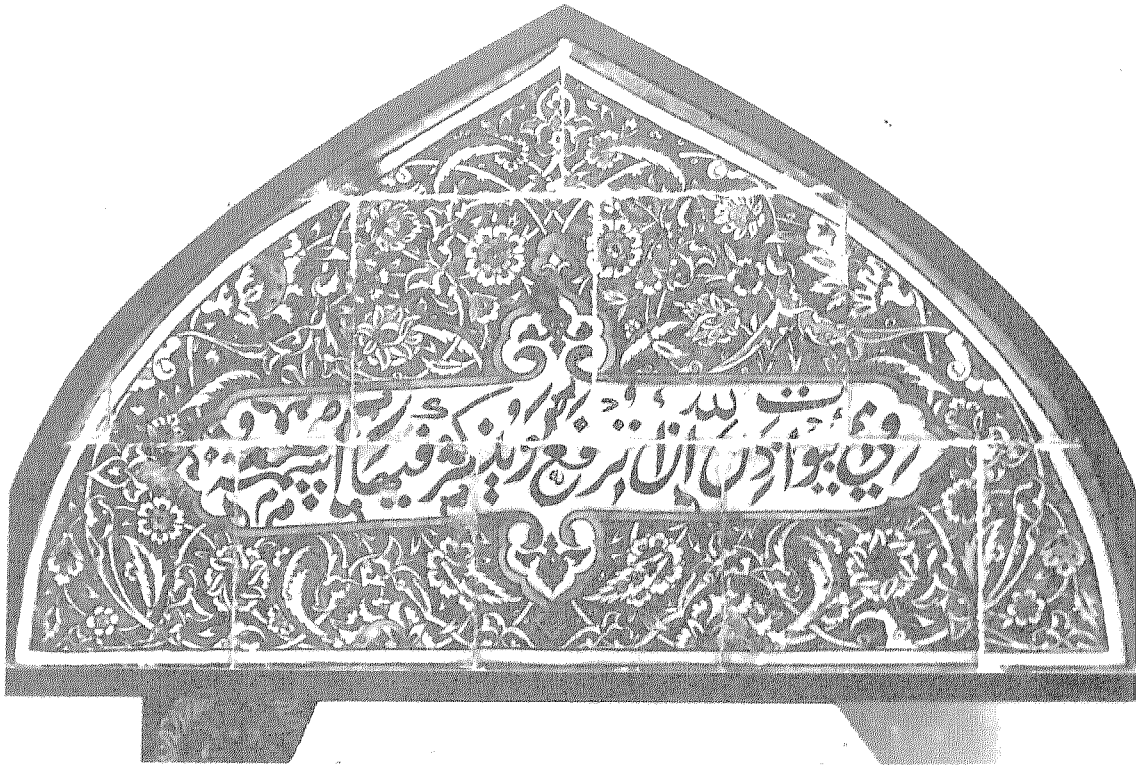 فى بيوت اذن الله ان ترفع ويذكر فيها اسمه